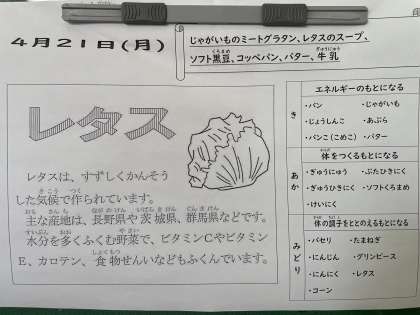 4月21日(月)
じゃがいものミートグラタン、レタスのスープ、
ソフト黒豆、コッペパン、バター、牛乳
レタス
レタスは、すずしくかんそう
した気候で作られています。
主な産地は、長野県や茨城県、群馬県などです。
水分を多くふくむ野菜で、ビタミンCやビタミン
E、カロテン、食物せんいなどもふくんでいます。
き
エネルギーのもとになる
・パン ・じゃがいも
・じょうしんこ ・あぶら
・パンこ(こめこ) ・バター
あか
体をつくるもとになる
・ぎゅうにゅう ・ぶたひきにく
・ぎゅうひきにく ・ソフトくろまめ
・けいにく
みどり
体の調子をととのえるもとになる
・パセリ ・たまねぎ
・にんじん ・グリンピース
・にんにく ・レタス
・コーン